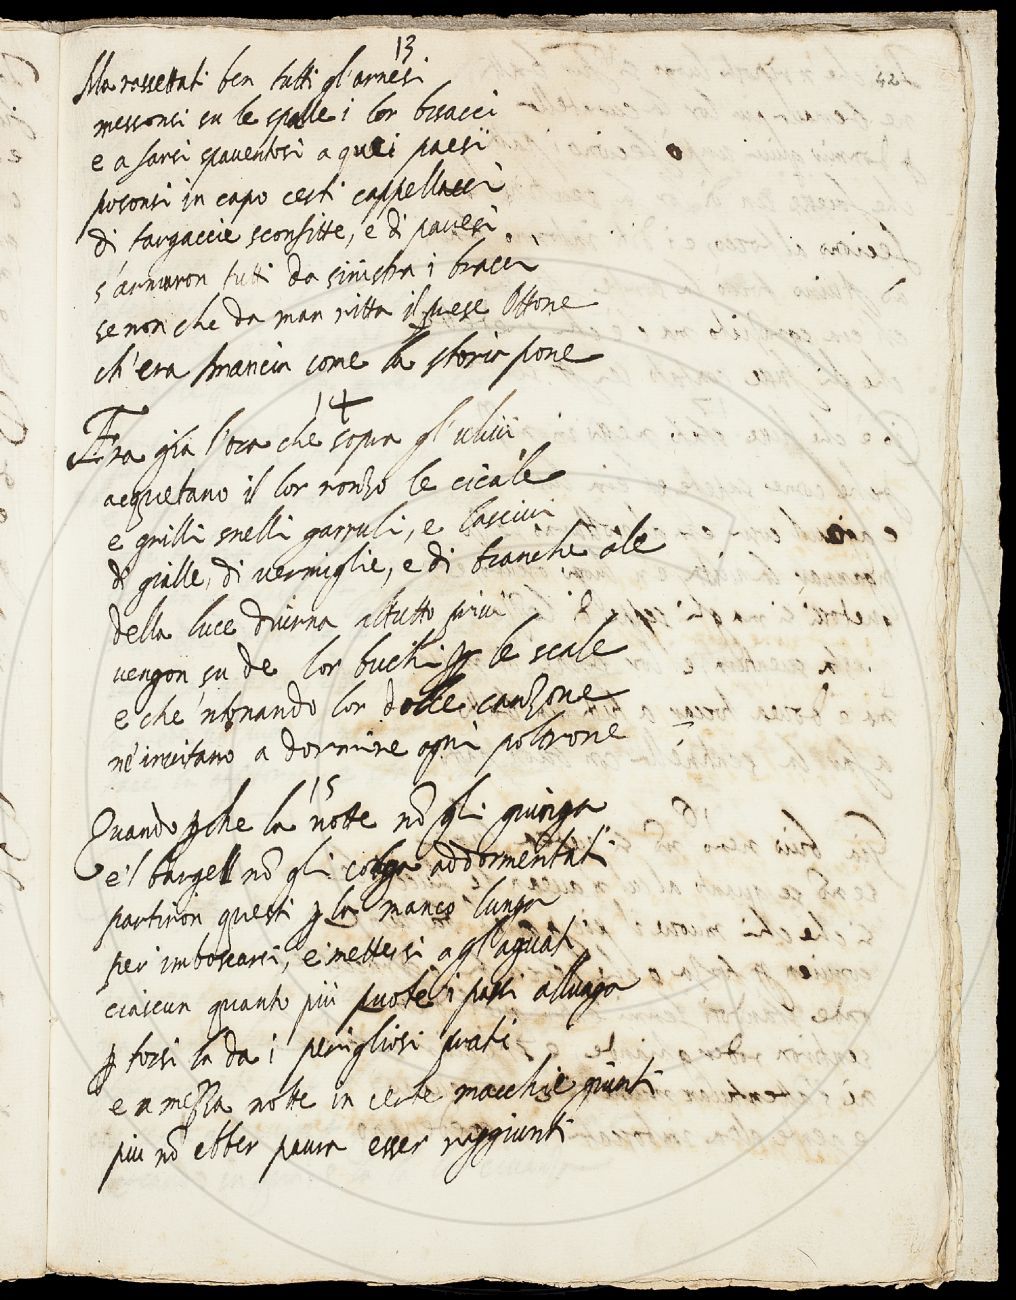 13
42
Ma rassettati ben tutti gl'arnesi
messonsi su le spalle i lor bisacci
e a farsi spaventosi a quei paesi
posonsi in capo certi cappellacci
di targaccie sconfitte, e di pavesi
s'armaron tutti da sinistra i bracci
se non che da man ritta il prese Ottone
ch'era mancin come la storia pone
14
Era già l'ora che sopra gl'ulivi
acquetano il lor ronzo le cicale
e grilli snelli garruli, e lascivi
di gialle, di vermiglie, e di bianche ale
della luce diurna al tutto privi
vengon su de lor buchi p le scale
e che 'ntonando lor dolce canzone
n'invitano a dormire ogni poltrone
15
Quando pche la notte nō gli giunga
e'l bargell nō gli colga addormentati
partiron questi p la manco lunga
per imboscarsi, e mettersi a gl'aguati
ciascun quanto più puote i passi allunga
p torsi la da i perigliosi prati
e a mezza notte in certe macchie giunti
più nō ebber paura esser raggiunti